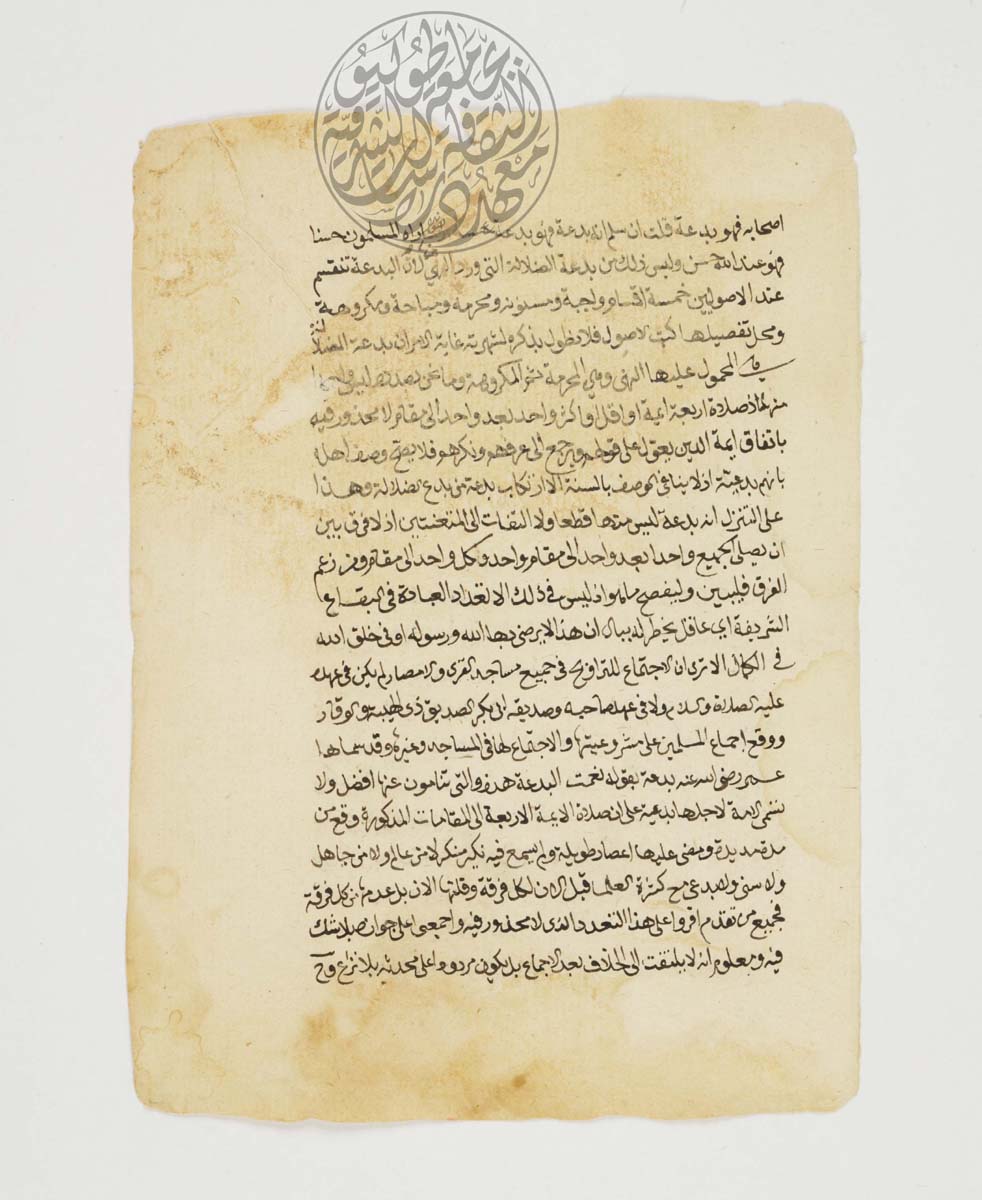 اصحابه فهو بدعة قلت ان سلم انه بدعة فهو بدعة حسنة راه المسلمون حسنا
فهو عند الله حسن وليس ذلك من بدعة الضلالة التي ورد النهي لان البدعة تنقسم
عند الاصوليين خمسة اقسام واجبة ومسنونه ومحرمه ومباحة ومكروهة
ومحل تفصيلها كتب الاصول فلا نطول بذكره لشهرته غاية الامر ان بدعة الضلالة
المحمول عليها النهي وهي المحرمة ثم المكروهة وما نحن بصدده ليس واحدا
منهما اذ صلاة اربعة ايمة او اقل او اكثر واحد بعد واحد الى مقام لا محذور فيه
باتفاق ايمة الدين يعول على قولهم ويرجع الى عرفهم ونكرهم فلا يصح وصف اهله
بانهم بدعية اذ لا ينافي الوصف بالسنة الا ارتكاب بدعة من بدع الضلالة وهذا
على التنزل انه بدعة ليس منها قطعا ولا التفات الى المتعنتين اذ لا فرق بين
ان يصلي الجميع واحدا بعد واحد الى مقام واحد وكل واحد الى مقام ومن زعم
الفرق فليبين وليفصح ما هو اذ ليس في ذلك الا تعداد العبادة في البقاع
الشريفة اي عاقل يخطر له ببال ان هذا لا يرضى بها الله ورسوله او في خلق الله
في الكمال الا ترى ان الاجتماع للتراويح في جميع مساجد القرى والامصار لم يكن في عهده
عليه الصلاة والسلام ولا في عهد صاحبه وصديقه ابي بكر الصديق ذي الهيبة والوقار
ووقع اجماع المسلمين على مشروعيتها والاجتماع لها في المساجد وغيرها وقد سماها
عمر رضى الله عنه بدعة بقوله نعمت البدعة هذه والتي تنامون عنها افضل ولا
تسمى الامة لاجلها بدعية على ان صلاة الايمة الاربعة الى المقامات المذكورة وقع من
مدة مديدة ومضى عليها اعصار طويلة ولم يسمع فيه نكير منكر لا من عالم ولا من جاهل
ولا سني ولا بدعي مع كثرة العلما قبل الان لكل فرقة وقلتها الان بل عدمها من كل فرقة
فجميع من تقدم اقروا على هذا التعدد الذى لا محذور فيه واجمعوا على جوازه بلا شك
فيه ومعلوم انه لا يلتفت الى الخلاف بعد الاجماع بل يكون مردودا على محدثيه بلا نزاع وح